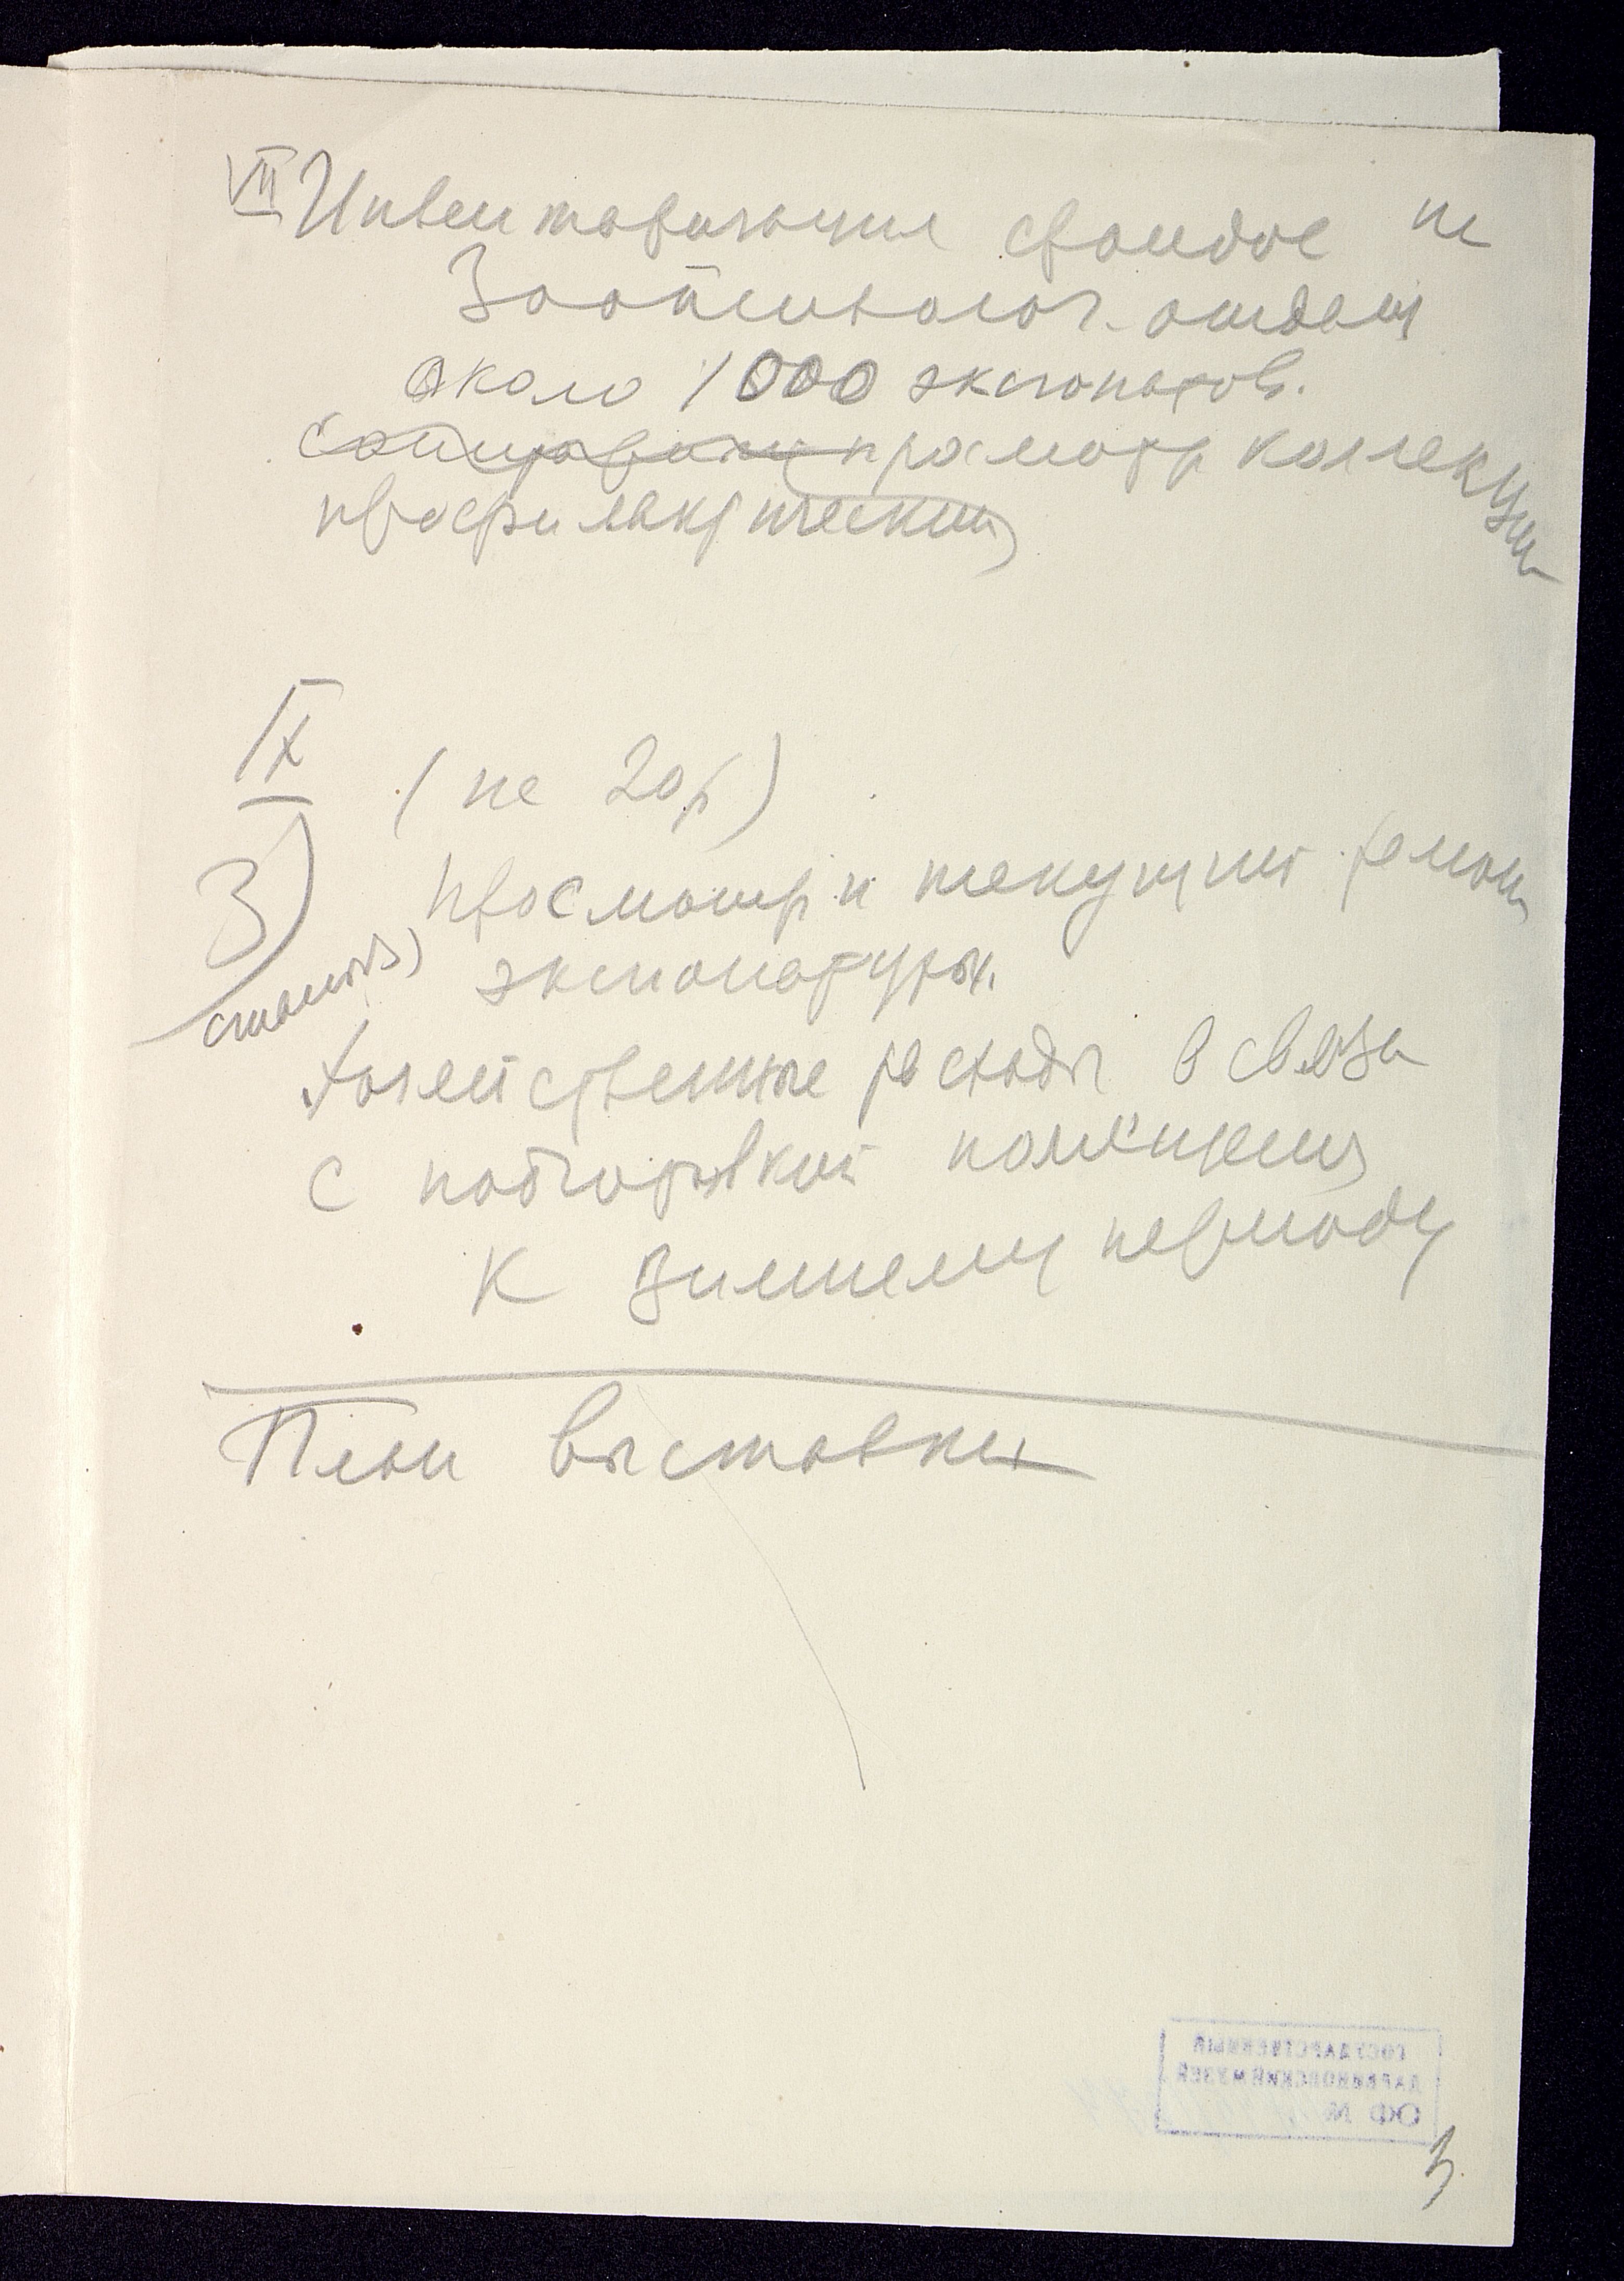 VII Инвентаризация фондов по
Зоопсихолог. отделу
около 1000 экспонатов.
просмотр коллекции
профилактический
IX
(по 20/
3) просмотр и текущий ремонт
экспонатуры.
Хозяйственные расходы в связи
с подготовкой помещения
к зимнему периоду
План выставки
ГОСУДАРСТВЕННЫЙ
ДАРВИНОВСКИЙ МУЗЕЙ
ОФ №
3